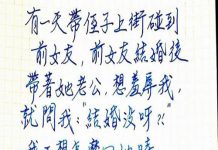 有一天帶侄子上街碰到
前女友，前女友結婚後
帶著她老公，想羞辱我，
就問我："結婚沒呀？"